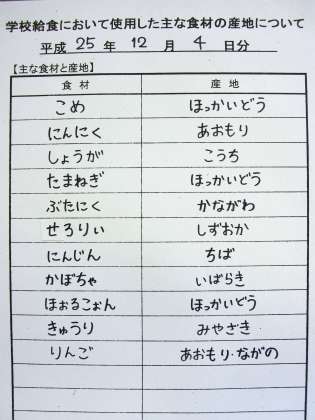 学校給食において使用した主な食材の産地について
平成 25 年 12 月 4 日分
【主な食材と産地】
食材 産地
こめ ほっかいどう
にんにく あおもり
しょうが こうち
たまねぎ ほっかいどう
ぶたにく かながわ
せろりぃ しずおか
にんじん ちば
かぼちゃ いばらき
ほぉるこぉん ほっかいどう
きゅうり みやざき
りんご あおもり・ながの